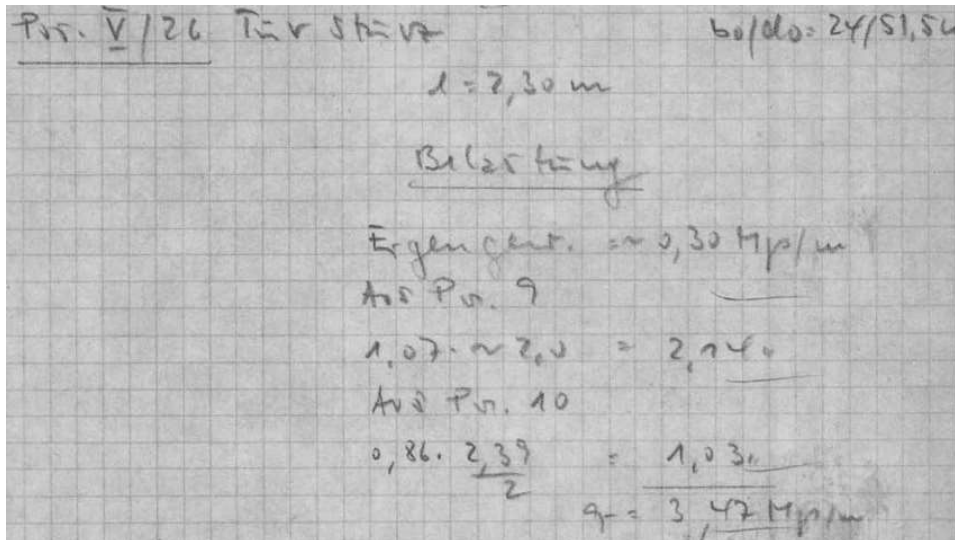 Pos. V/26 Türsturz b₀/d₀ = 24/51,5
l = 2,30 m
Belastung
Eigengew. =~ 0,30 Mp/m
Aus Pos. 9
1,07 · ~ 2,0 = 2,14 "
Aus Pos. 10
0,86 · 2,39/2 = 1,03 "
q = 3,47 Mp/m